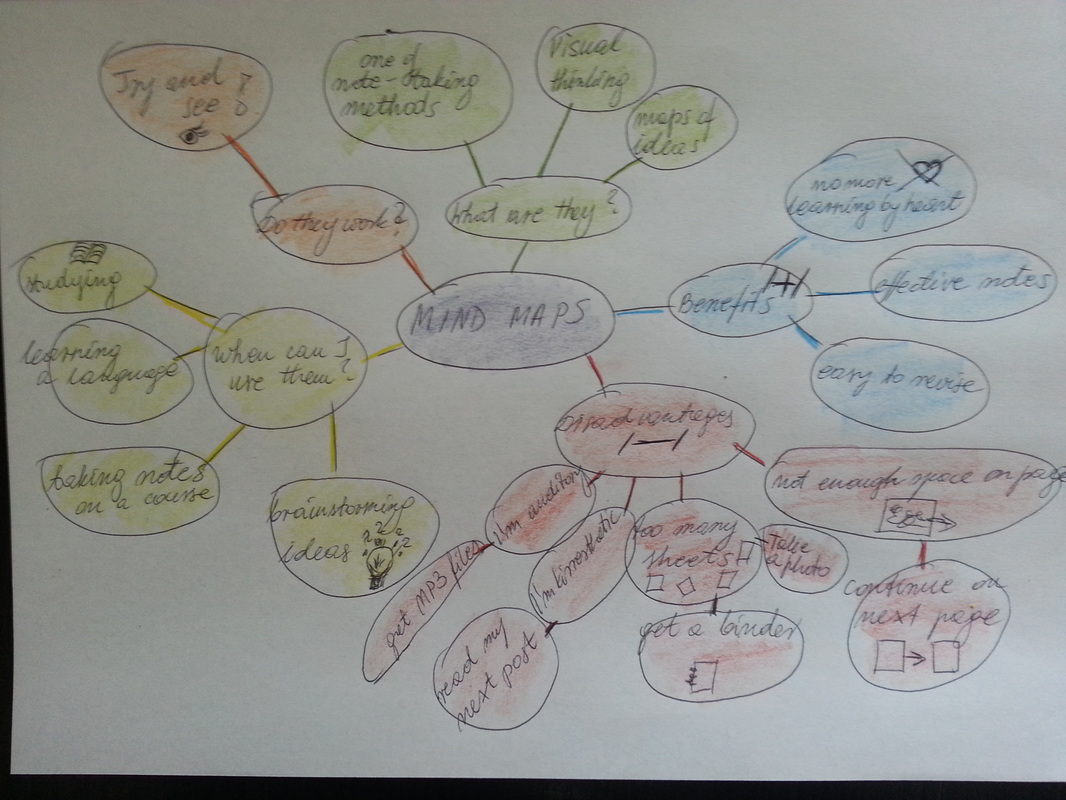 MIND MAPS
Do they work?
Try and
see
What are they?
one of
note-taking
methods
Visual
thinking
maps of
ideas
Benefits /+/
no more
learning by heart
effective notes
easy to revise
Disadvantages
/—/
not enough space on page
continue on
next page
too many
sheets
take
a photo
get a binder
I'm kinesthetic
read my
next post
I'm auditory
get MP3 files
When can I
use them?
studying
learning
a language
taking notes
on a course
brainstorming
ideas